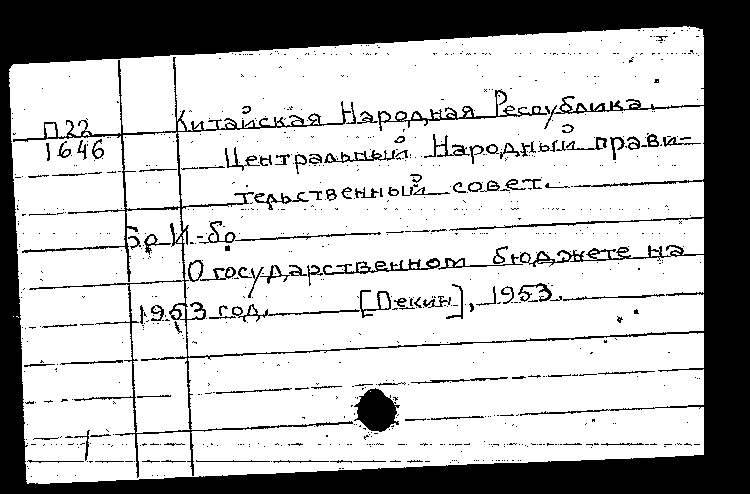 П22
1646
Китайская Народная Республика.
Центральный Народный прави-
тельственный совет.
бр И.-бр
О государственном бюджете на
1953 год. [Пекин], 1953.